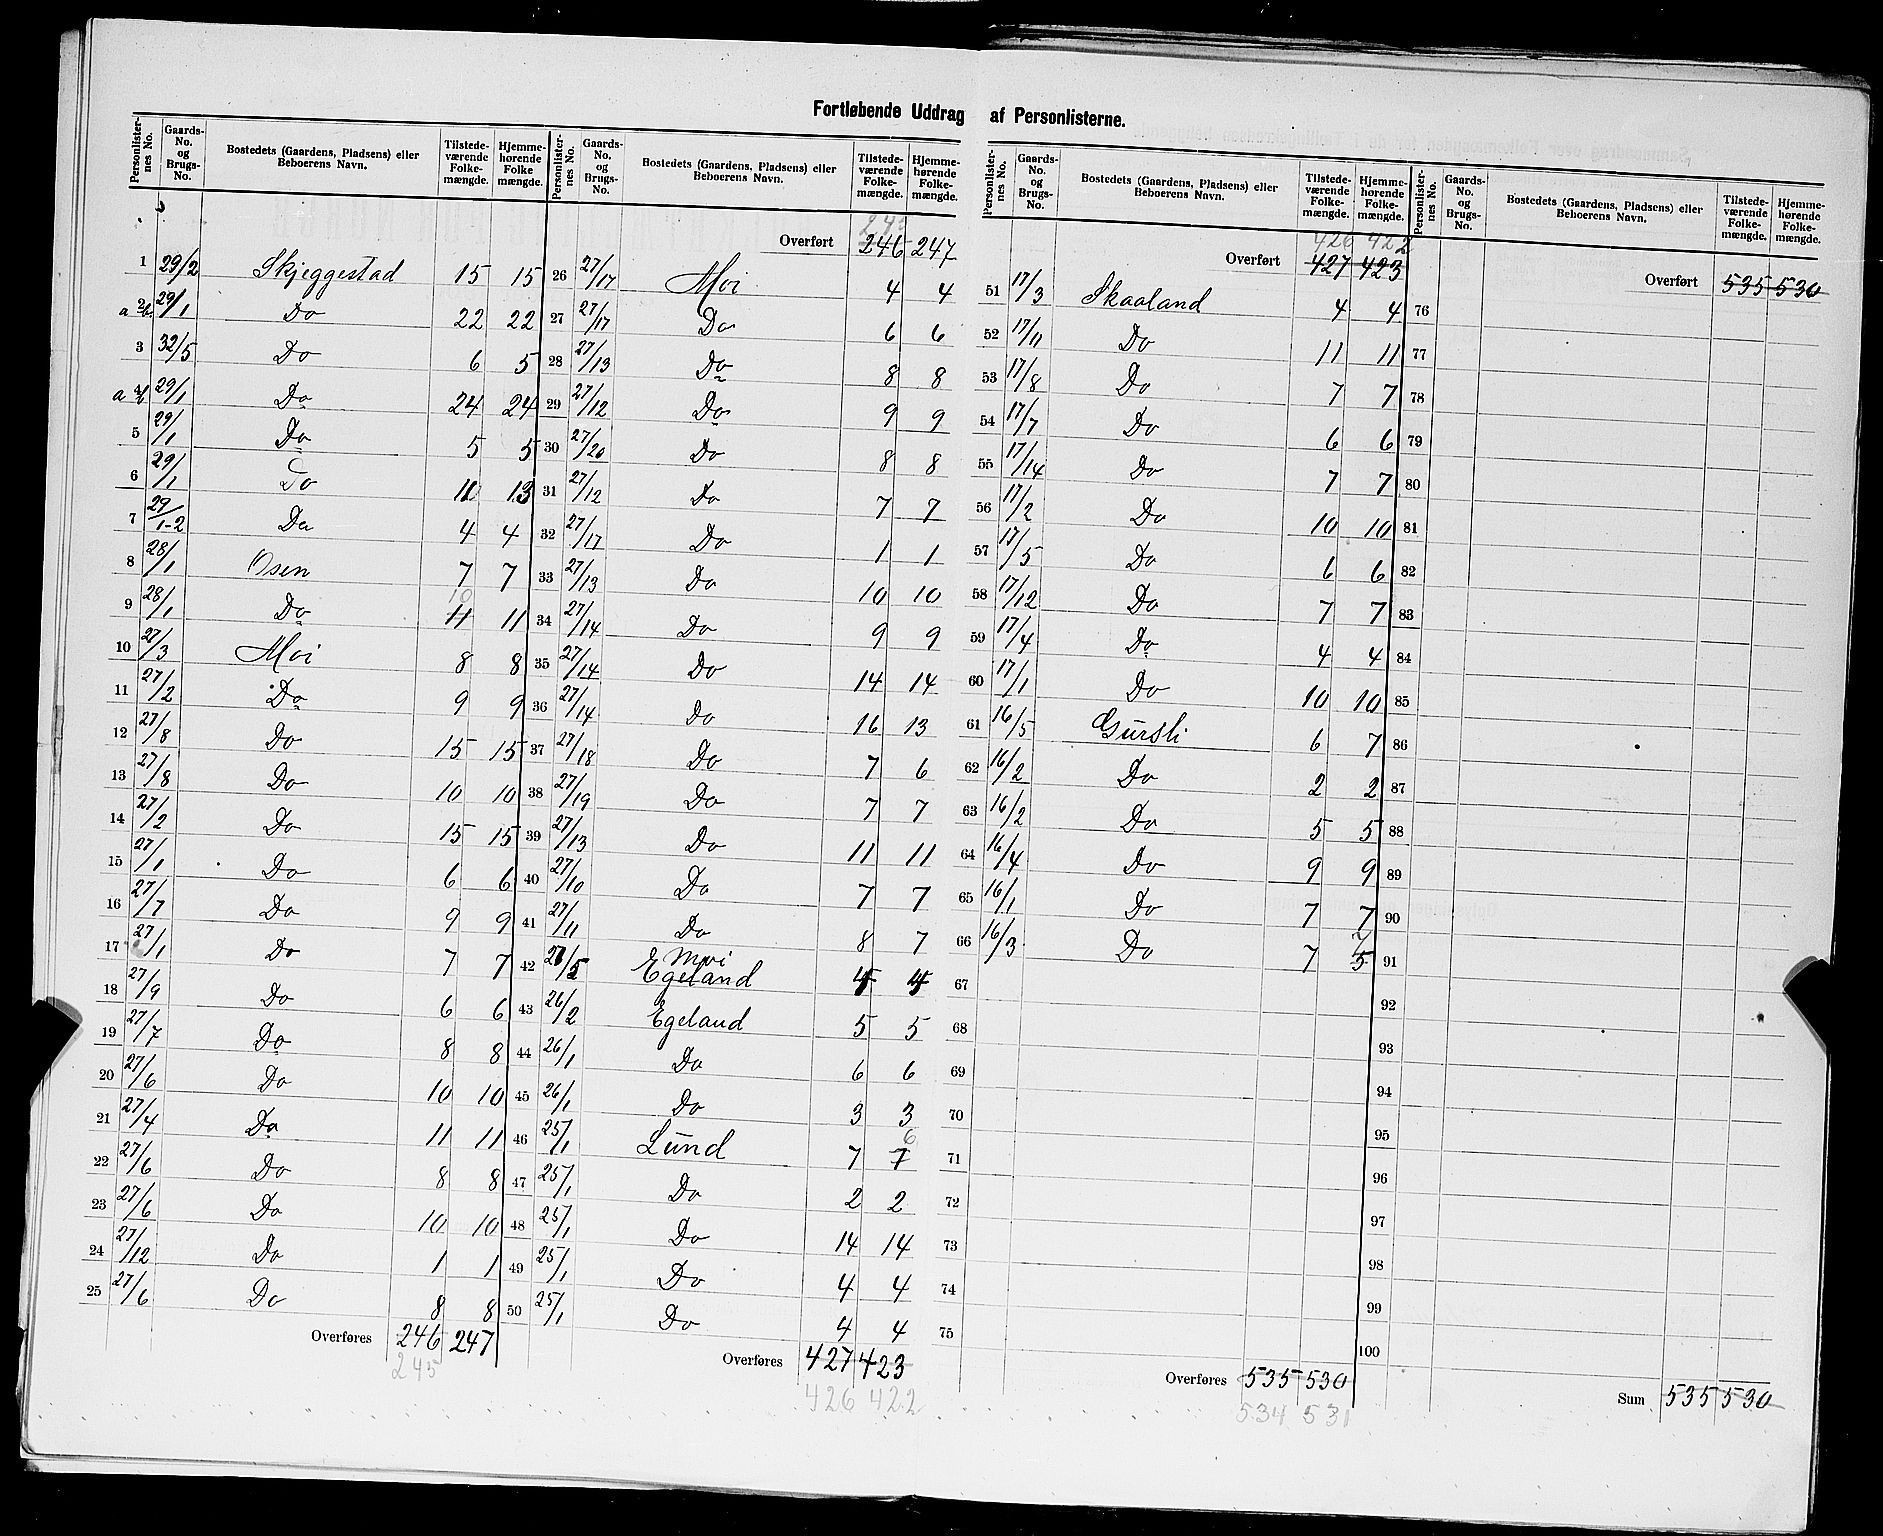 Fortløbende Uddrag af Personlisterne.
Personlisternes No. Gaards-No. og Brugs-No. Bostedets (Gaardens, Pladsens) eller Beboerens Navn. Tilstedeværende Folkemængde. Hjemmehørende Folkemængde.
1 29/2 Skjeggestad 15 15
a 2b 29/1 Do 22 22
3 32/5 Do 6 5
a 4b 29/1 Do 24 24
5 29/1 Do 5 5
6 29/1 Do 10 13
7 29/1-2 Do 4 4
8 28/1 Osen 7 7
9 28/1 Do 11 10 11
10 27/3 Moi 8 8
11 27/2 Do 9 9
12 27/8 Do 15 15
13 27/8 Do 10 10
14 27/2 Do 15 15
15 27/1 Do 6 6
16 27/7 Do 9 9
17 27/1 Do 7 7
18 27/9 Do 6 6
19 27/7 Do 8 8
20 27/6 Do 10 10
21 27/4 Do 11 11
22 27/6 Do 8 8
23 27/6 Do 10 10
24 27/12 Do 1 1
25 27/6 Do 8 8
Overføres 246 247
245
Personlisternes No. Gaards-No. og Brugs-No. Bostedets (Gaardens, Pladsens) eller Beboerens Navn. Tilstedeværende Folkemængde. Hjemmehørende Folkemængde.
Overført 246 247
26 27/17 Moi 4 4
27 27/17 Do 6 6
28 27/13 Do 8 8
29 27/12 Do 9 9
30 27/20 Do 8 8
31 27/12 Do 7 7
32 27/17 Do 1 1
33 27/13 Do 10 10
34 27/14 Do 9 9
35 27/14 Do 14 14
36 27/14 Do 16 13
37 27/18 Do 7 6
38 27/19 Do 7 7
39 27/13 Do 11 11
40 27/10 Do 7 7
41 27/11 Do 8 7
Moi
42 27/5 Egeland 4 4
43 26/2 Egeland 5 5
44 26/1 Do 6 6
45 26/1 Do 3 3
46 25/1 Lund 7 7 6
47 25/1 Do 2 2
48 25/1 Do 14 14
49 25/1 Do 4 4
50 25/1 Do 4 4
Overføres 427 423
426 422
Personlisternes No. Gaards-No. og Brugs-No. Bostedets (Gaardens, Pladsens) eller Beboerens Navn. Tilstedeværende Folkemængde. Hjemmehørende Folkemængde.
426 422
Overført 427 423
51 17/3 Skaaland 4 4
52 17/11 Do 11 11
53 17/8 Do 7 7
54 17/7 Do 6 6
55 17/14 Do 7 7
56 17/2 Do 10 10
57 17/5 Do 6 6
58 17/12 Do 7 7
59 17/4 Do 4 4
60 17/1 Do 10 10
61 16/5 Gursli 6 7
62 16/2 Do 2 2
63 16/2 Do 5 5
64 16/4 Do 9 9
65 16/1 Do 7 7
66 16/3 Do 7 5 7
67
68
69
70
71
72
73
74
75
Overføres 535 530
534 531
Personlisternes No. Gaards-No. og Brugs-No. Bostedets (Gaardens, Pladsens) eller Beboerens Navn. Tilstedeværende Folkemængde. Hjemmehørende Folkemængde.
Overført 535 530
76
77
78
79
80
81
82
83
84
85
86
87
88
89
90
91
92
93
94
95
96
97
98
99
100
Sum 535 530